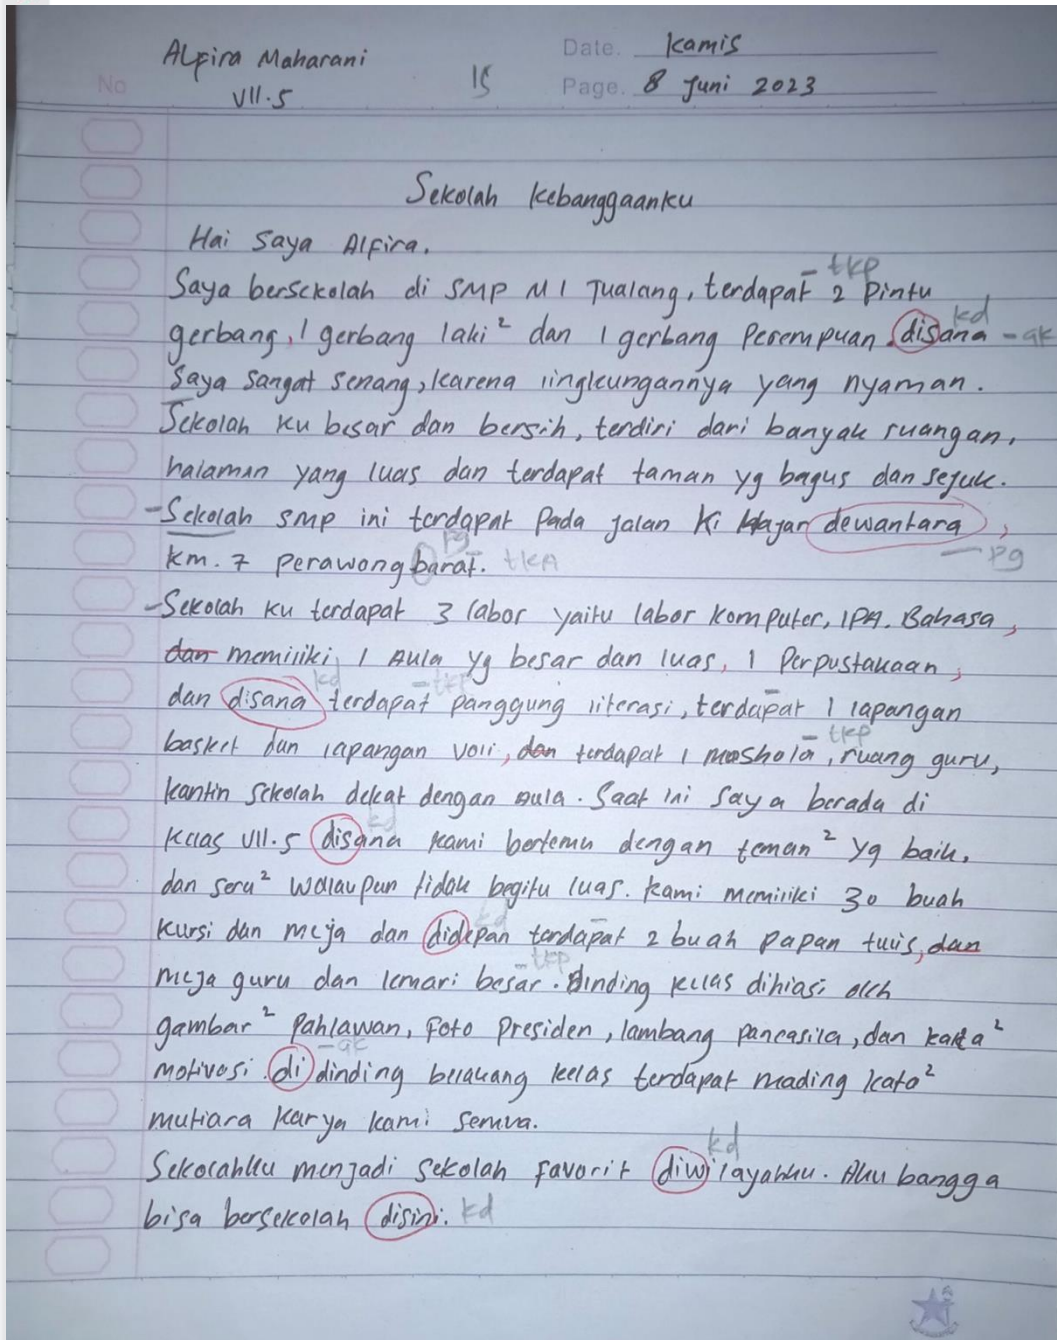 Alfira Maharani
VII.5
15
No
Date. Kamis
Page. 8 Juni 2023
Sekolah Kebanggaanku
Hai Saya Alfira.
- tkp
Saya bersekolah di SMP N 1 Tualang, terdapat 2 Pintu
kd
gerbang, 1 gerbang laki² dan 1 gerbang Perempuan. disana - ak
Saya Sangat Senang, karena lingkungannya yang nyaman.
Sekolah ku besar dan bersih, terdiri dari banyak ruangan,
halaman yang luas dan terdapat taman yg bagus dan sejuk.
- Sekolah SMP ini terdapat Pada jalan Ki Hajar dewantara,
pg
Km. 7 Perawang barat. tkA
- pg
- Sekolah ku terdapat 3 labor yaitu labor Komputer, IPA. Bahasa,
dan memiliki 1 Aula yg besar dan luas, 1 Perpustakaan,
kd - tkp
dan disana terdapat panggung literasi, terdapat 1 lapangan
- tkp
basket dan lapangan voli, dan terdapat 1 moshola, ruang guru,
kantin sekolah dekat dengan aula. Saat ini Saya berada di
kd
Kelas VII.5 disana Kami bertemu dengan teman² yg baik,
dan seru² walaupun tidak begitu luas. Kami memiliki 30 buah
kd
Kursi dan meja dan didepan terdapat 2 buah papan tulis, dan
- tkp
meja guru dan lemari besar. Dinding kelas dihiasi oleh
gambar² Pahlawan, Foto Presiden, lambang pancasila, dan kata²
- ak
motivasi. di dinding belakang kelas terdapat mading kata²
mutiara Karya Kami Semua.
kd
Sekolahku menjadi sekolah favorit diwilayahku. Aku bangga
bisa bersekolah disini. kd